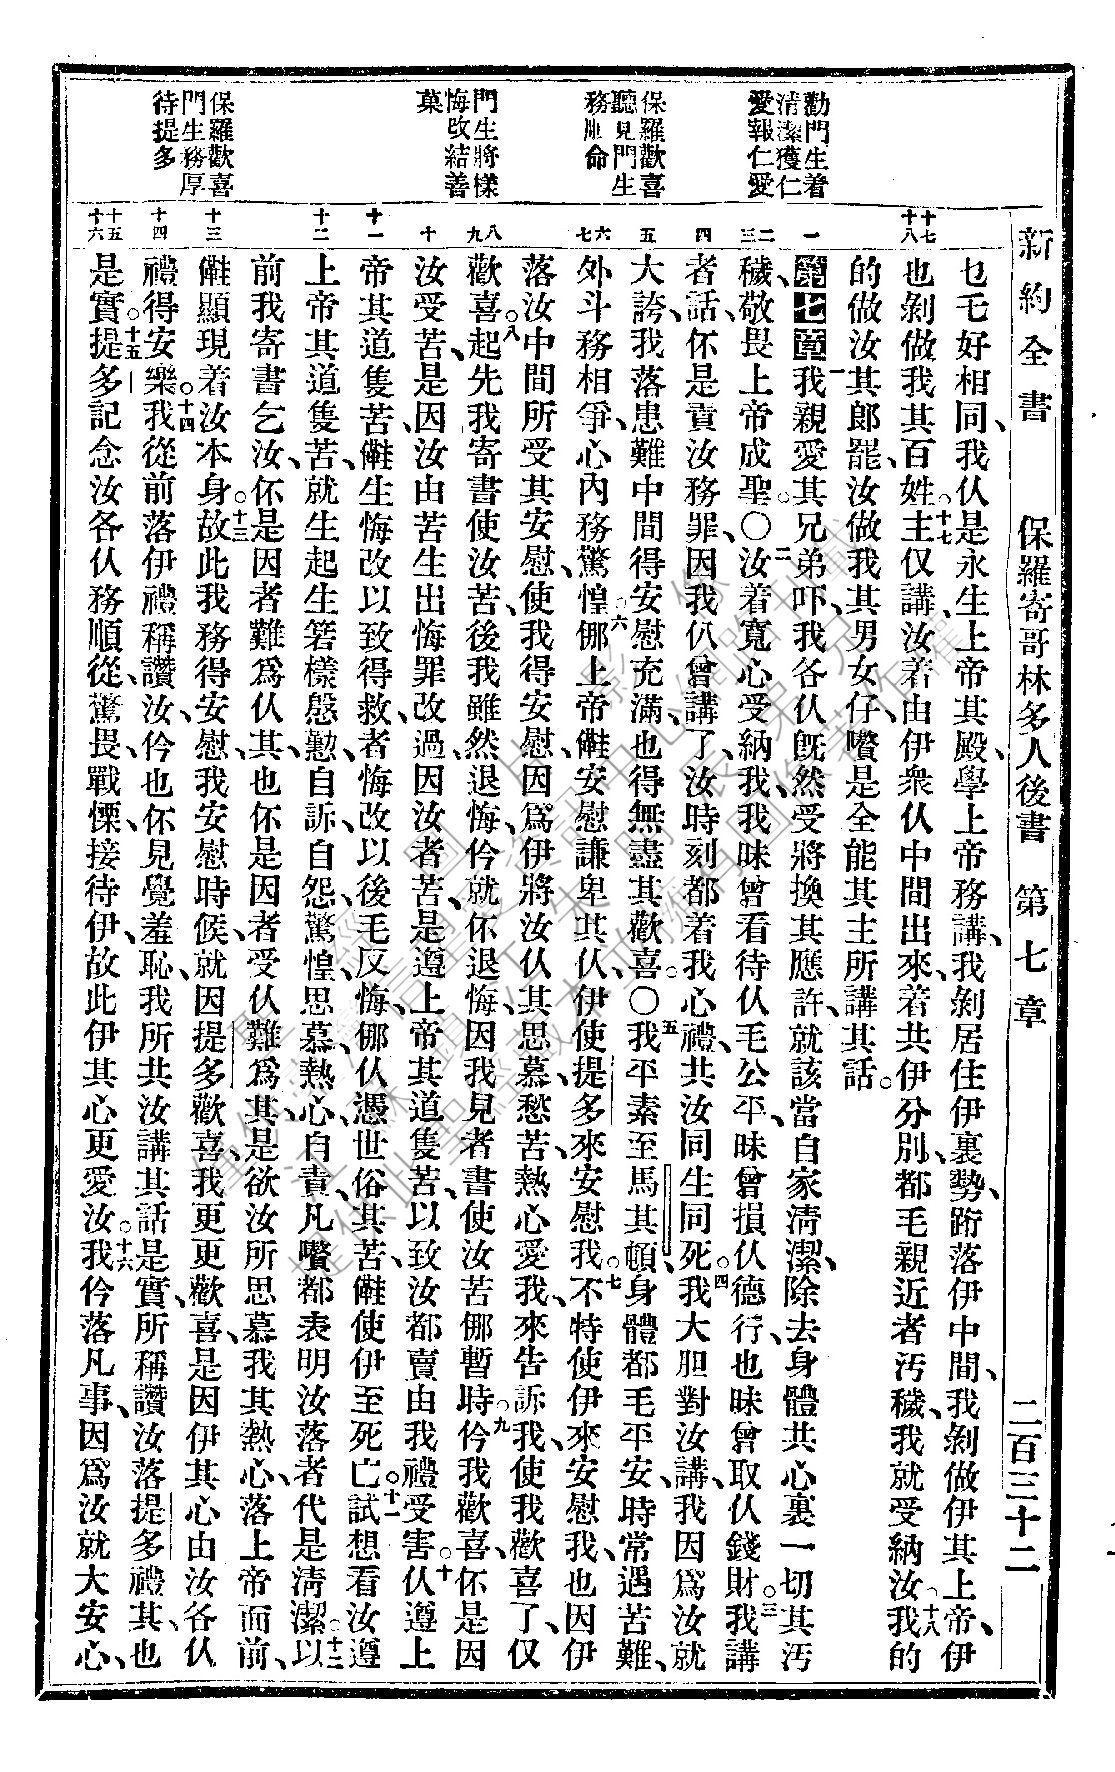 新約全書 保羅寄哥林多人後書 第七章 二百三十二
勸門生着
清潔獲仁
愛報仁愛
保羅歡喜
聽見門生
務順命
門生將樣
悔改結善
菓
保羅歡喜
門生務厚
待提多
十七
十八
一
二
三
四
五
六
七
八
九
十
十一
十二
十三
十四
十五
十六
乜毛好相同、我仈是永生上帝其殿、學上帝務講、我剝居住伊裏勢、跲落伊中間、我剝做伊其上帝、伊
也剝做我其百姓。十七主仅講、汝着由伊衆仈中間出來、着共伊分別、都毛親近者汚穢、我就受納汝。十八我的
的做汝其郎罷、汝做我其男女仔、嚽是全能其主所講其話。
第七章一我親愛其兄弟吓、我各仈旣然受將換其應許、就該當自家淸潔、除去身體共心裏一切其汚
穢、敬畏上帝成聖。〇二汝着寬心受納我、我昧曾看待仈毛公平、昧曾損仈德行、也昧曾取仈錢財。三我講
者話、伓是責汝務罪、因我仈曾講了、汝時刻都着我心禮、共汝同生同死。四我大胆對汝講、我因爲汝就
大誇、我落患難中間得安慰充滿、也得無盡其歡喜。〇五我平素至馬其頓、身體都毛平安、時常遇苦難、
外斗務相爭、心內務驚惶。六㑚上帝㒰安慰謙卑其仈、伊使提多來安慰我。七不特使伊來安慰我、也因伊
落汝中間所受其安慰、使我得安慰、因爲伊將汝仈其思慕愁苦、熱心愛我、來告訴我、使我歡喜了、仅
歡喜。八起先我寄書使汝苦、後我雖然退悔、仱就伓退悔、因我見者書使汝苦㑚暫時。九仱我歡喜、伓是因
汝受苦、是因汝由苦生出悔罪改過、因汝者苦、是遵上帝其道隻苦、以致汝都賣由我禮受害。十仈遵上
帝其道隻苦、㒰生悔改以致得救、者悔改以後毛反悔、㑚仈憑世俗其苦、㒰使伊至死亡。十一試想看汝遵
上帝其道隻苦、就生起生箬樣慇懃、自訴、自怨、驚惶、思慕、熱心、自責、凡嚽都表明汝落者代是淸潔。十二以
前我寄書乞汝、伓是因者難爲仈其、也伓是因者受仈難爲其、是欲汝所思慕我其熱心、落上帝面前、
㒰顯現着汝本身。十三故此我務得安慰、我安慰時候、就因提多歡喜、我更更歡喜、是因伊其心由汝各仈
禮得安樂。十四我從前落伊禮稱讚汝、仱也伓見覺羞恥、我所共汝講其話是實、所稱讚汝落提多禮其、也
是實。十五提多記念汝各仈務順從、驚畏戰慄、接待伊、故此伊其心更愛汝。十六我仱落凡事、因爲汝就大安心、